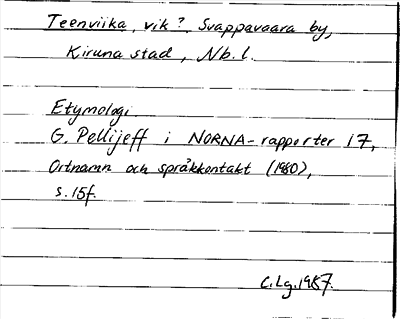 Teenviika, vik?, Svappavaara by,
Kiruna stad, Nb. l.
Etymologi
G. Pellijeff i NORNA-rapporter 17,
Ortnamn och språkkontakt (1980),
s. 15f.
C. Lg. 1987.